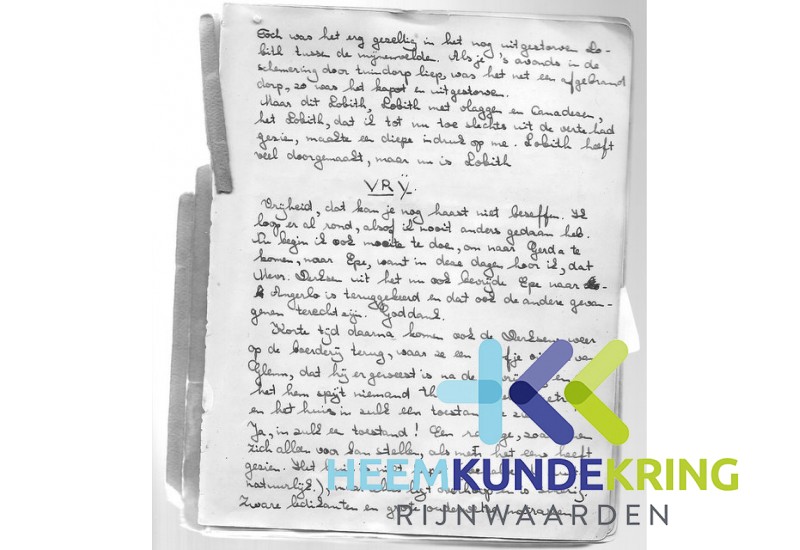 Toch was het erg gezellig in het nog uitgestorven Lo-
bith tussen de mijnenvelden. Als je 's avonds in de
schemering door tuindorp liep was het net een afgebrand
dorp, zo was het kapot en uitgestorven.
Maar dit Lobith, Lobith met vlaggen en Canadezen,
het Lobith, dat ik tot nu toe slechts uit de verte had
gezien, maakte een diepe indruk op me. Lobith heeft
veel doorgemaakt, maar nu is Lobith
VRIJ.
Vrijheid, dat kan je nog haast niet beseffen. Ik
loop er al rond, alsof ik nooit anders gedaan heb.
Nu begin ik ook moeite te doen, om naar Gerda te
komen, naar Epe, want in deze dagen hoor ik, dat
Mevr. Derksen uit het nu ook bevrijde Epe naar
Angerlo is teruggekeerd en dat ook de andere gevan-
genen terecht zijn. Goddank.
Korte tijd daarna komen ook de Derksens weer
op de boerderij terug, waar ze een
Glenn, dat hij er geweest is na de en
het hem spijt niemand
en het huis in zulk een toestand
Ja, in zulk een toestand! Een
zich alleen voor kan stellen, als men het eens heeft
gezien. Het
natuurlijk!),
Zware ledikanten en grote matrassen
HEEMKUNDEKRING
RIJNWAARDEN